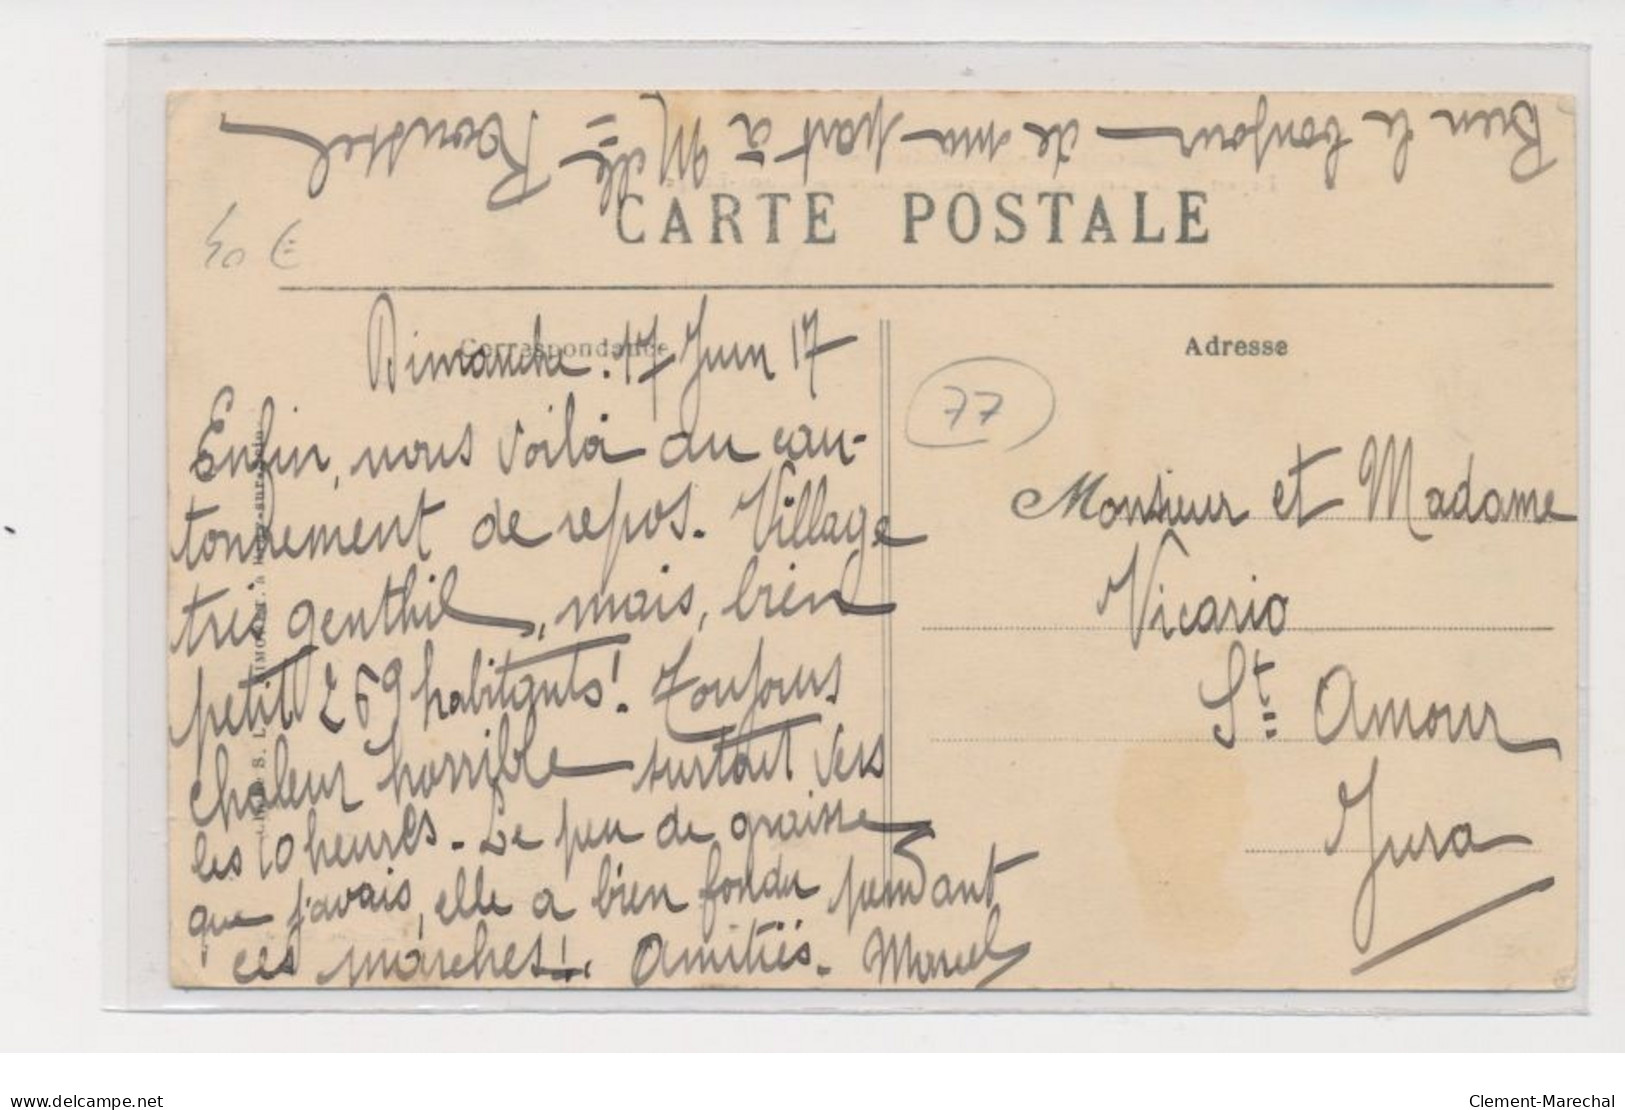 Bien le bonjour de ma part à Mlle Roussel
CARTE POSTALE
40 €
Correspondance
Adresse
77
Dimanche. 17 Juin 17
Enfin, nous voilà au can-
tonnement de repos. Village
très genthil, mais, bien
petit 269 habitants! Toujours
chaleur horrible surtout vers
les 10 heures. Le peu de graisse
que j'avais, elle a bien fondu pendant
ces marches!. Amitiés. Marcel
Monsieur et Madame
Vicario
St Amour
Jura
delcampe.net
Clement-Marechal